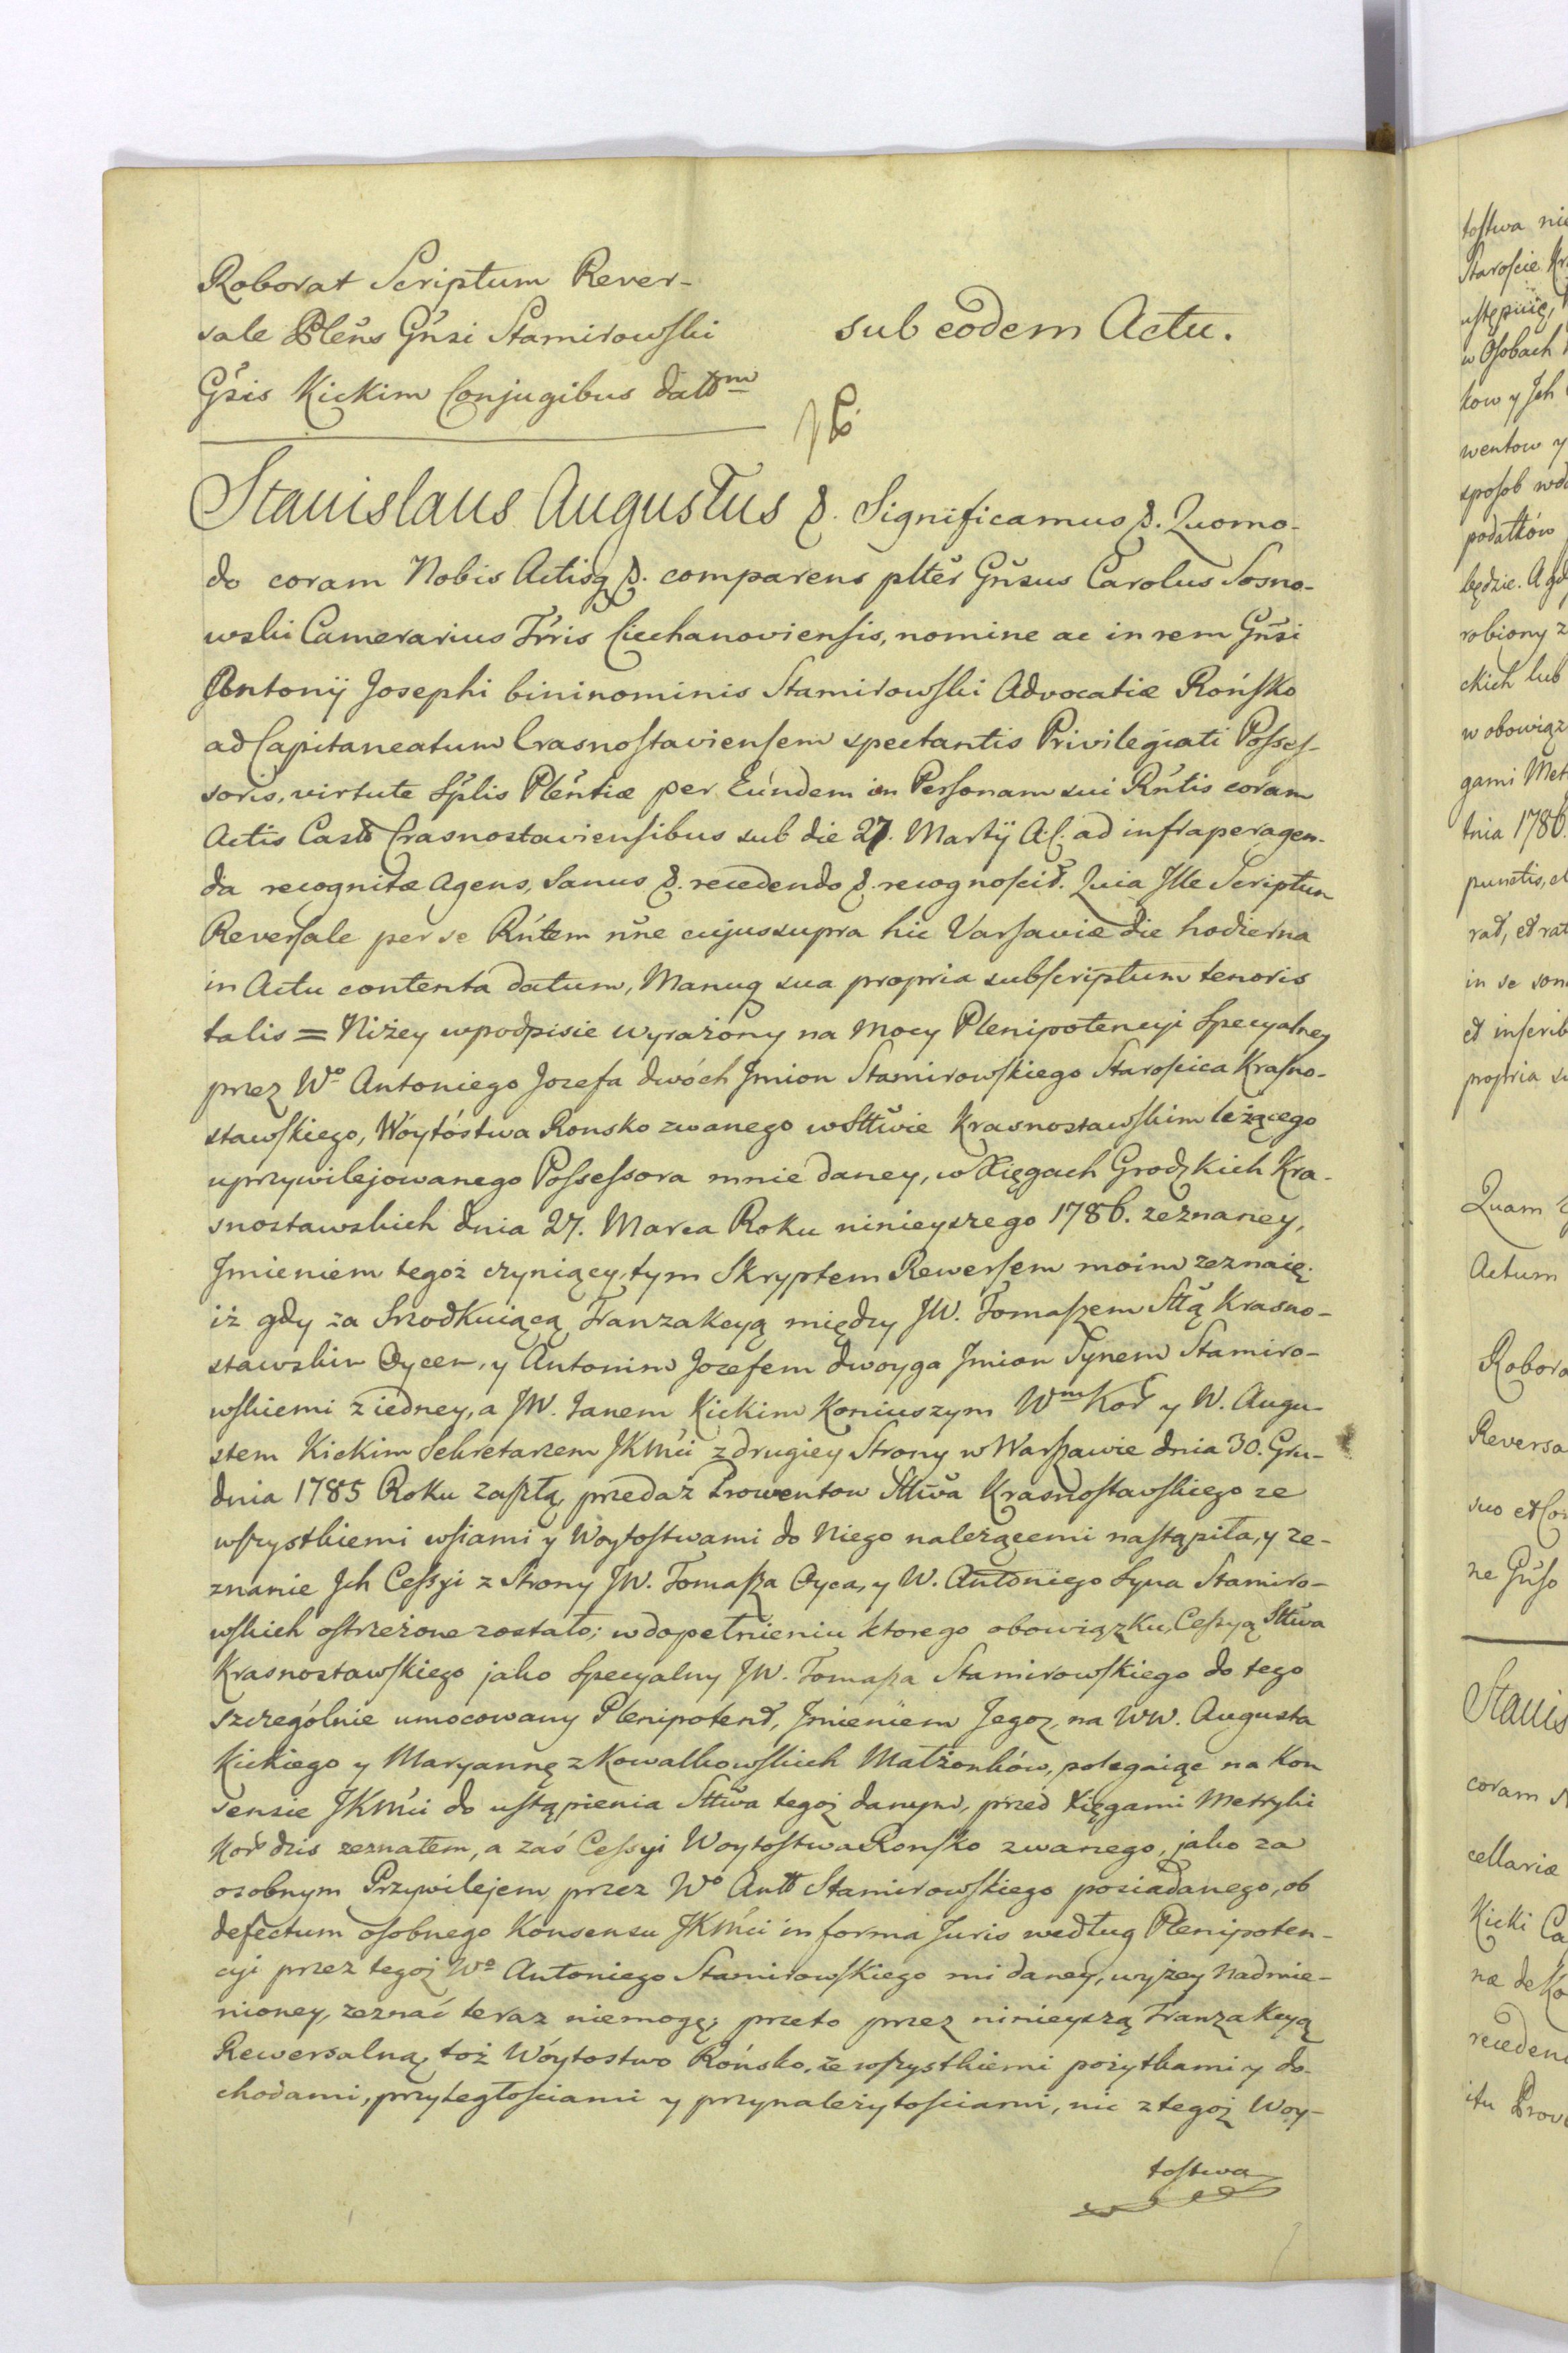 Roborat Scriptum Rever-
sale Pleñs Gñsi Stamirowski
Gsis Kickim Conjugibus dattm
sub eodem Actu.
Stanislaus Augustus &. Significamus &. Quomo-
do coram Nobis Actisq &. comparens pltěr Gñsus Carolus Sosno-
wski Camerarius Trris Ciechanoviensis, nomine ac in rem Gñsi
Antonÿ Josephi bininominis Stamirowski Advocatiæ Rońsko
ad Capitaneatum Crasnostaviensem spectantis Privilegiati Posses-
soris, virtute Splis Plentiæ per Eundem in Personam sui Rntis coram
Actis Castr Crasnostaviensibus sub die 27. Martÿ A. C. ad infra peragen-
da recognitæ Agens, Sanus &. recedendo &. recognoscit. Quia Ille Scriptum
Reversale per se Rntem nñe cujus supra hic Varsaviæ die hodierna
in Actu contenta datum, Manuq sua propria subscriptum tenoris
talis = Niżey w podpisie wyrażony na mocy Plenipotencyi Specyalney
przez Wo Antoniego Jozefa dwóch Jmion Stamirowskiego Starościca Krasno-
stawskiego, Wóytóstwa Ronsko zwanego w Sttwie Krasnostawskim leżącego
uprzywilejowanego Possessora mnie daney, w Xięgach Grodzkich Kra-
snostawskich dnia 27. Marca Roku ninieyszego 1786. zeznaney,
Jmieniem tegoż czyniący, tym Skryptem Rewersem moim zeznaię:
iż gdy za Srzodkuiącą Tranzakcyą między JW. Tomaszem Sttą Krasno-
stawskim Oycem, y Antonim Jozefem dwoyga Jmion Synem Stamiro-
wskiemi z iedney, a JW. Janem Kickim Koniuszym Wm Kor y W. Augu-
stem Kickim Sekretarzem JKMci z drugiey Strony w Warszawie dnia 30. Gru-
dnia 1785 Roku zaszłą, przedaż Prowentow Sttwa Krasnostawskiego ze
wszystkiemi wsiami y Woytostwami do Niego należącemi nastąpiła, y ze-
znanie Jch Cessyi z Strony JW. Tomasza Oyca, y W. Antoniego Syna Stamiro-
wskich ostrzeżone zostało; w dopełnieniu ktorego obowiązku, Cessyą Sttwa
Krasnostawskiego jako Specyalny JW. Tomasza Stamirowskiego do tego
szczególnie umocowany Plenipotent, Jmieniem Jegoz, na WW. Augusta
Kickiego y Maryannę z Kowalkowskich Małżonków, polegaiąc na Kon
sensie JKMci do ustąpienia Sttwa tegoz danym, przed Xięgami Metryki
Kor dzis zeznałem, a zaś Cessyi Woytostwa Ronsko zwanego, jako za
osobnym Przywilejem przez Wo Antt Stamirowskiego posiadanego, ob
defectum osobnego Konsensu JKMci in forma Juris według Plenipoten-
cyi przez tegoz Wo Antoniego Stamirowskiego mi daney, wyżey nadmie-
nioney, zeznać teraz niemogę; przeto przez ninieyszą Tranzakcyą
Rewersalną, toż Wóytostwo Rońsko, ze wszystkiemi pożytkami y do-
chodami, przyległościami y przynależytościami, nic z tegoz Woy-
tostwa
tostwa nie
Staroscie Kr
ustępuię,
w Osobach
kow y Jch
wentow y
sposob
podatków
będzie. A gdy
robiony z
ckich lub
w obowiąz
gami Met
tnia 1786.
punctis, cl
rat, et rat
in se
et inscrib
propria su
Quam
Actum
Robora
Reversa
suo et Co
ne Gñso
Stanis
coram N
cellariæ
Kicki Ca
næ de Ko
recedend
itu Prov